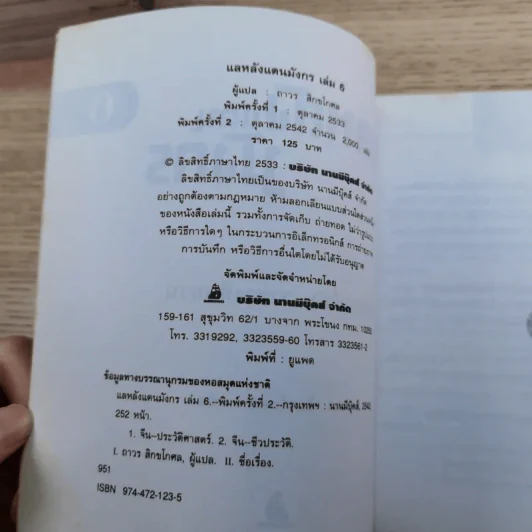 แลหลังแดนมังกร เล่ม 6
ผู้แปล : ถาวร สิกขโกศล
พิมพ์ครั้งที่ 1 : ตุลาคม 2533
พิมพ์ครั้งที่ 2 : ตุลาคม 2542 จำนวน 2,000 เล่ม
ราคา 125 บาท
© ลิขสิทธิ์ภาษาไทย 2533 : บริษัท นานมีบุ๊คส์ จำกัด
ลิขสิทธิ์ภาษาไทยเป็นของบริษัท นานมีบุ๊คส์ จำกัด
อย่างถูกต้องตามกฎหมาย ห้ามลอกเลียนแบบส่วนใดส่วนหนึ่ง
ของหนังสือเล่มนี้ รวมทั้งการจัดเก็บ ถ่ายทอด ไม่ว่ารูปแบบ
หรือวิธีการใดๆ ในกระบวนการอิเล็กทรอนิกส์ การถ่ายภาพ
การบันทึก หรือวิธีการอื่นใดโดยไม่ได้รับอนุญาต
จัดพิมพ์และจัดจำหน่ายโดย
บริษัท นานมีบุ๊คส์ จำกัด
159-161 สุขุมวิท 62/1 บางจาก พระโขนง กทม. 10250
โทร. 3319292, 3323559-60 โทรสาร 3323561-2
พิมพ์ที่ : ยูแพด
ข้อมูลทางบรรณานุกรมของหอสมุดแห่งชาติ
แลหลังแดนมังกร เล่ม 6.--พิมพ์ครั้งที่ 2.--กรุงเทพฯ : นานมีบุ๊คส์, 2542
252 หน้า.
1. จีน--ประวัติศาสตร์. 2. จีน--ชีวประวัติ.
I. ถาวร สิกขโกศล, ผู้แปล. II. ชื่อเรื่อง.
951
ISBN 974-472-123-5